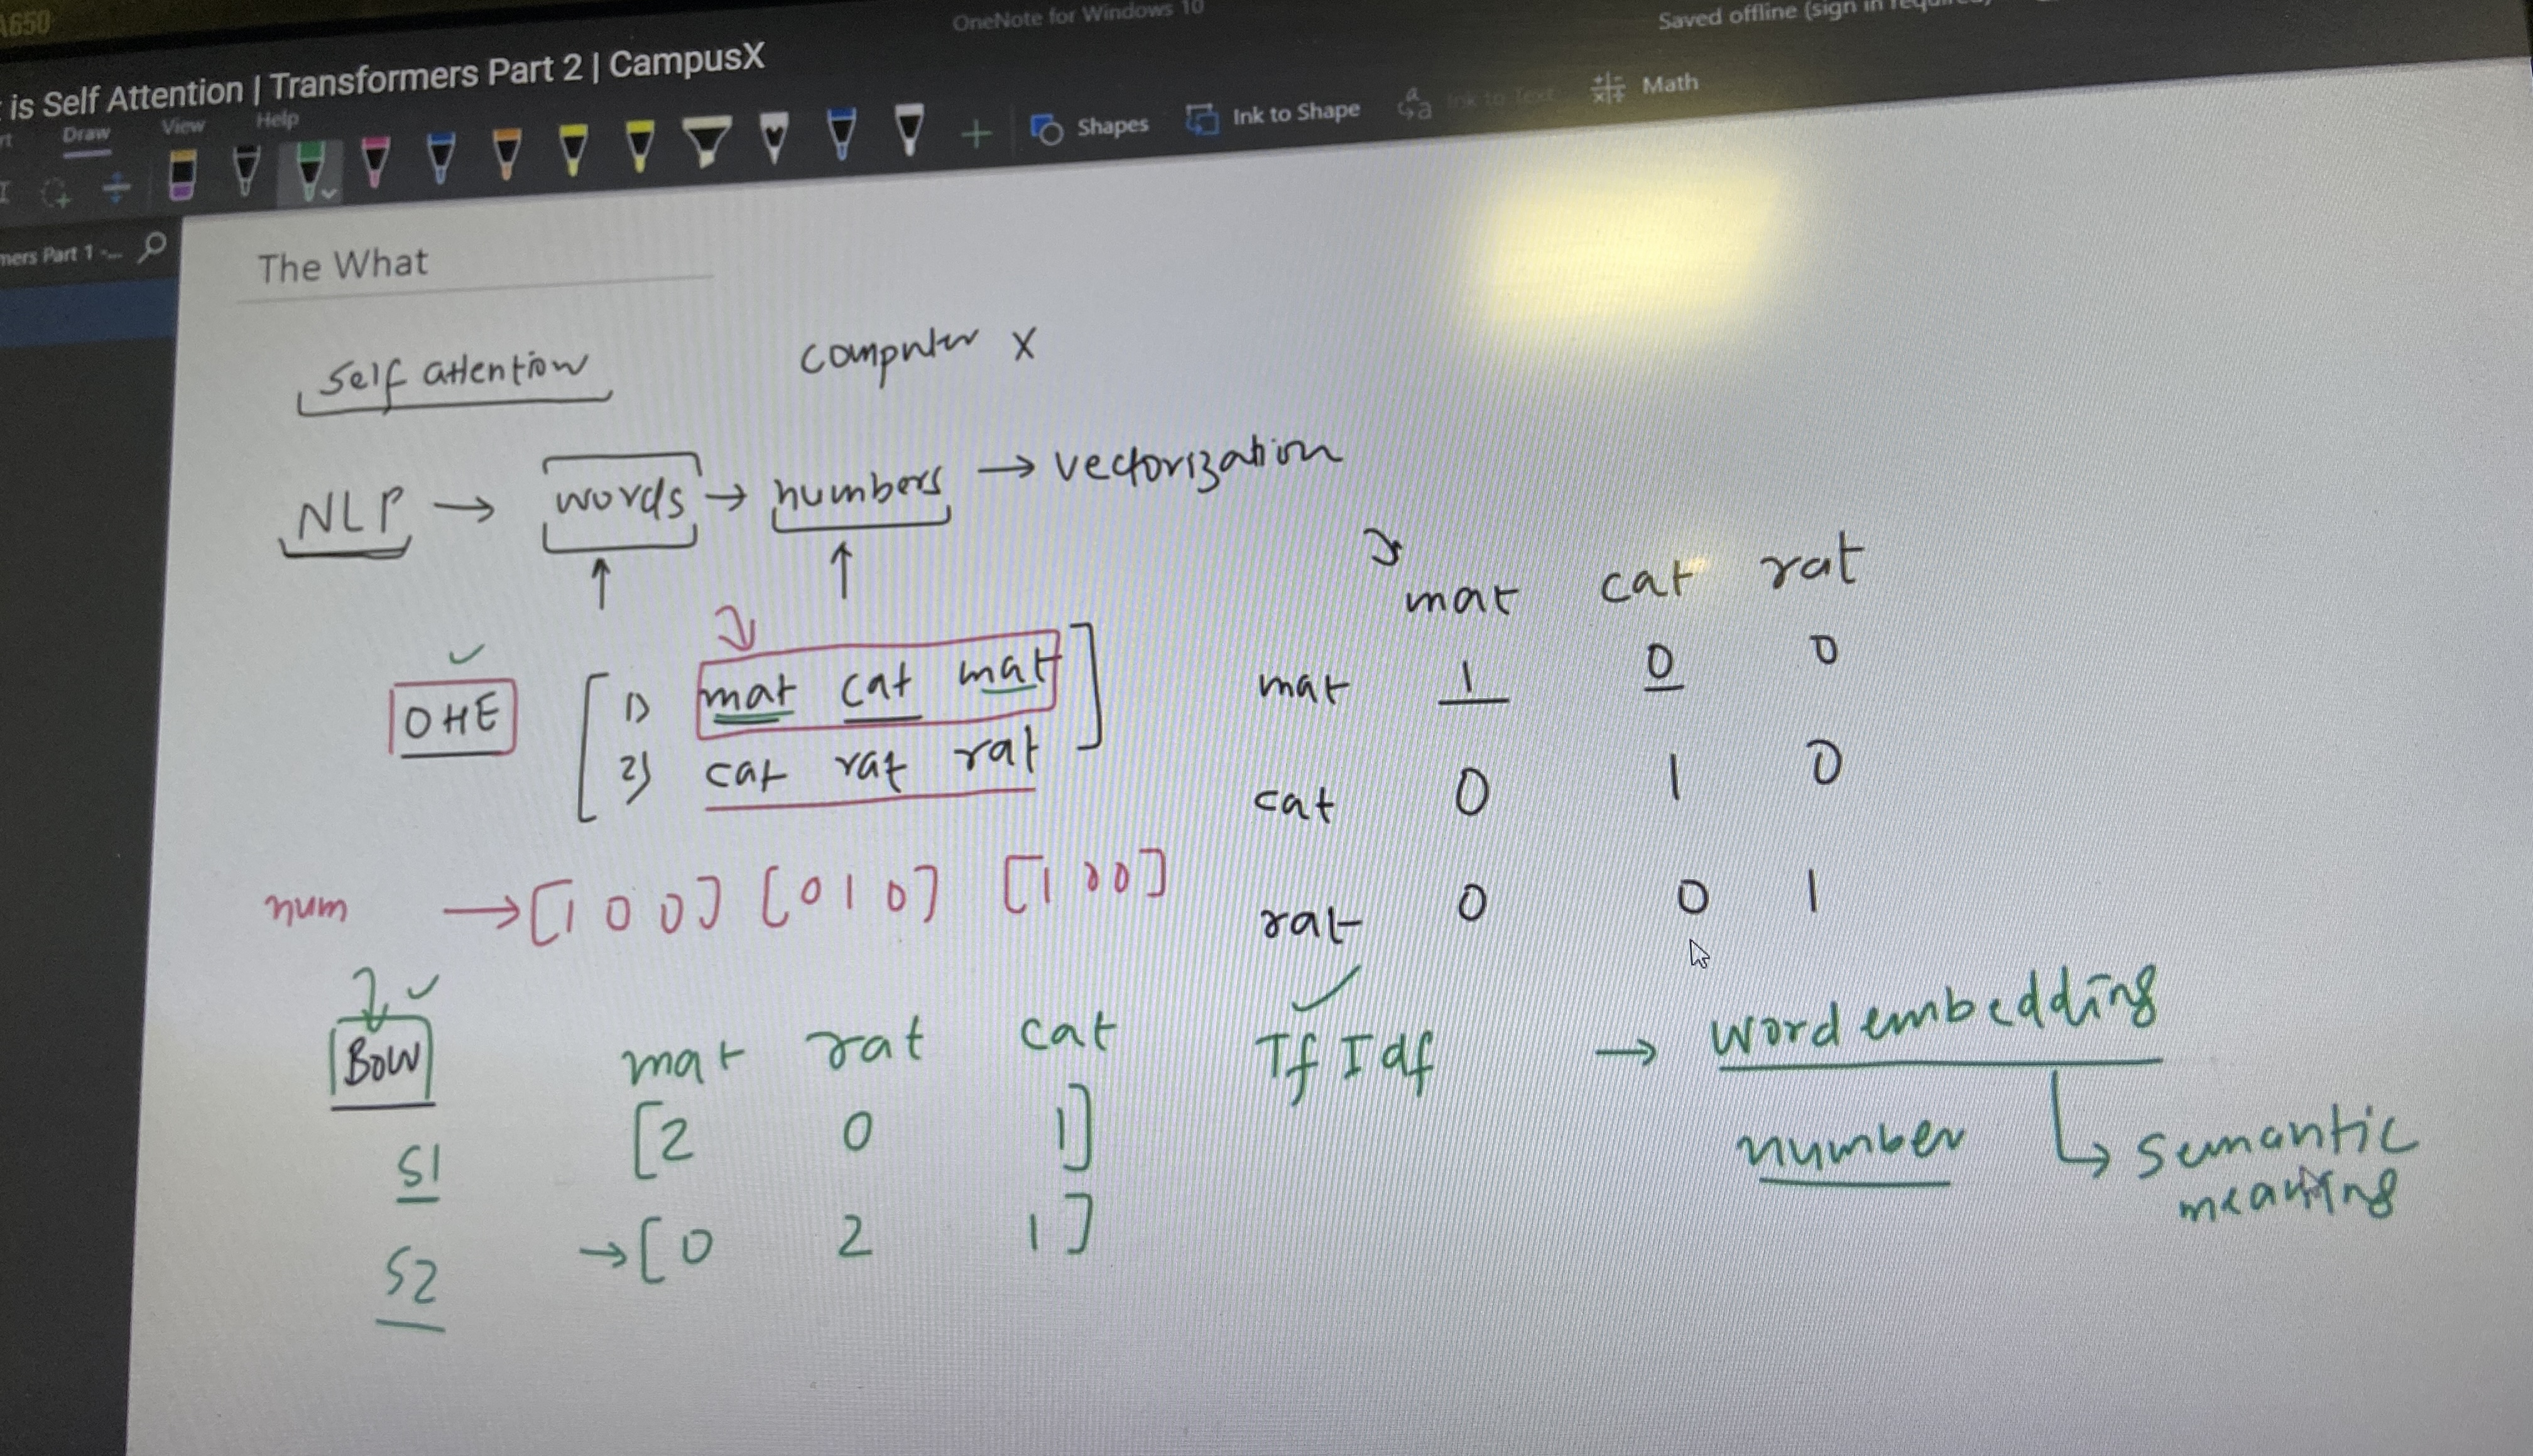 A650
OneNote for Windows 10
Saved offline (sign in required)
is Self Attention | Transformers Part 2 | CampusX
Draw View Help
Shapes Ink to Shape Ink to Text Math
mers Part 1 -...
The What
self attention computer X
NLP → words → numbers → vectorization
mat cat rat
mat 1 0 0
cat 0 1 0
rat 0 0 1
OHE
1) mat cat mat
2) cat rat rat
num → [1 0 0] [0 1 0] [1 0 0]
BOW mat rat cat
S1 [2 0 1]
S2 → [0 2 1]
Tf Idf → word embedding
number
semantic
meaning